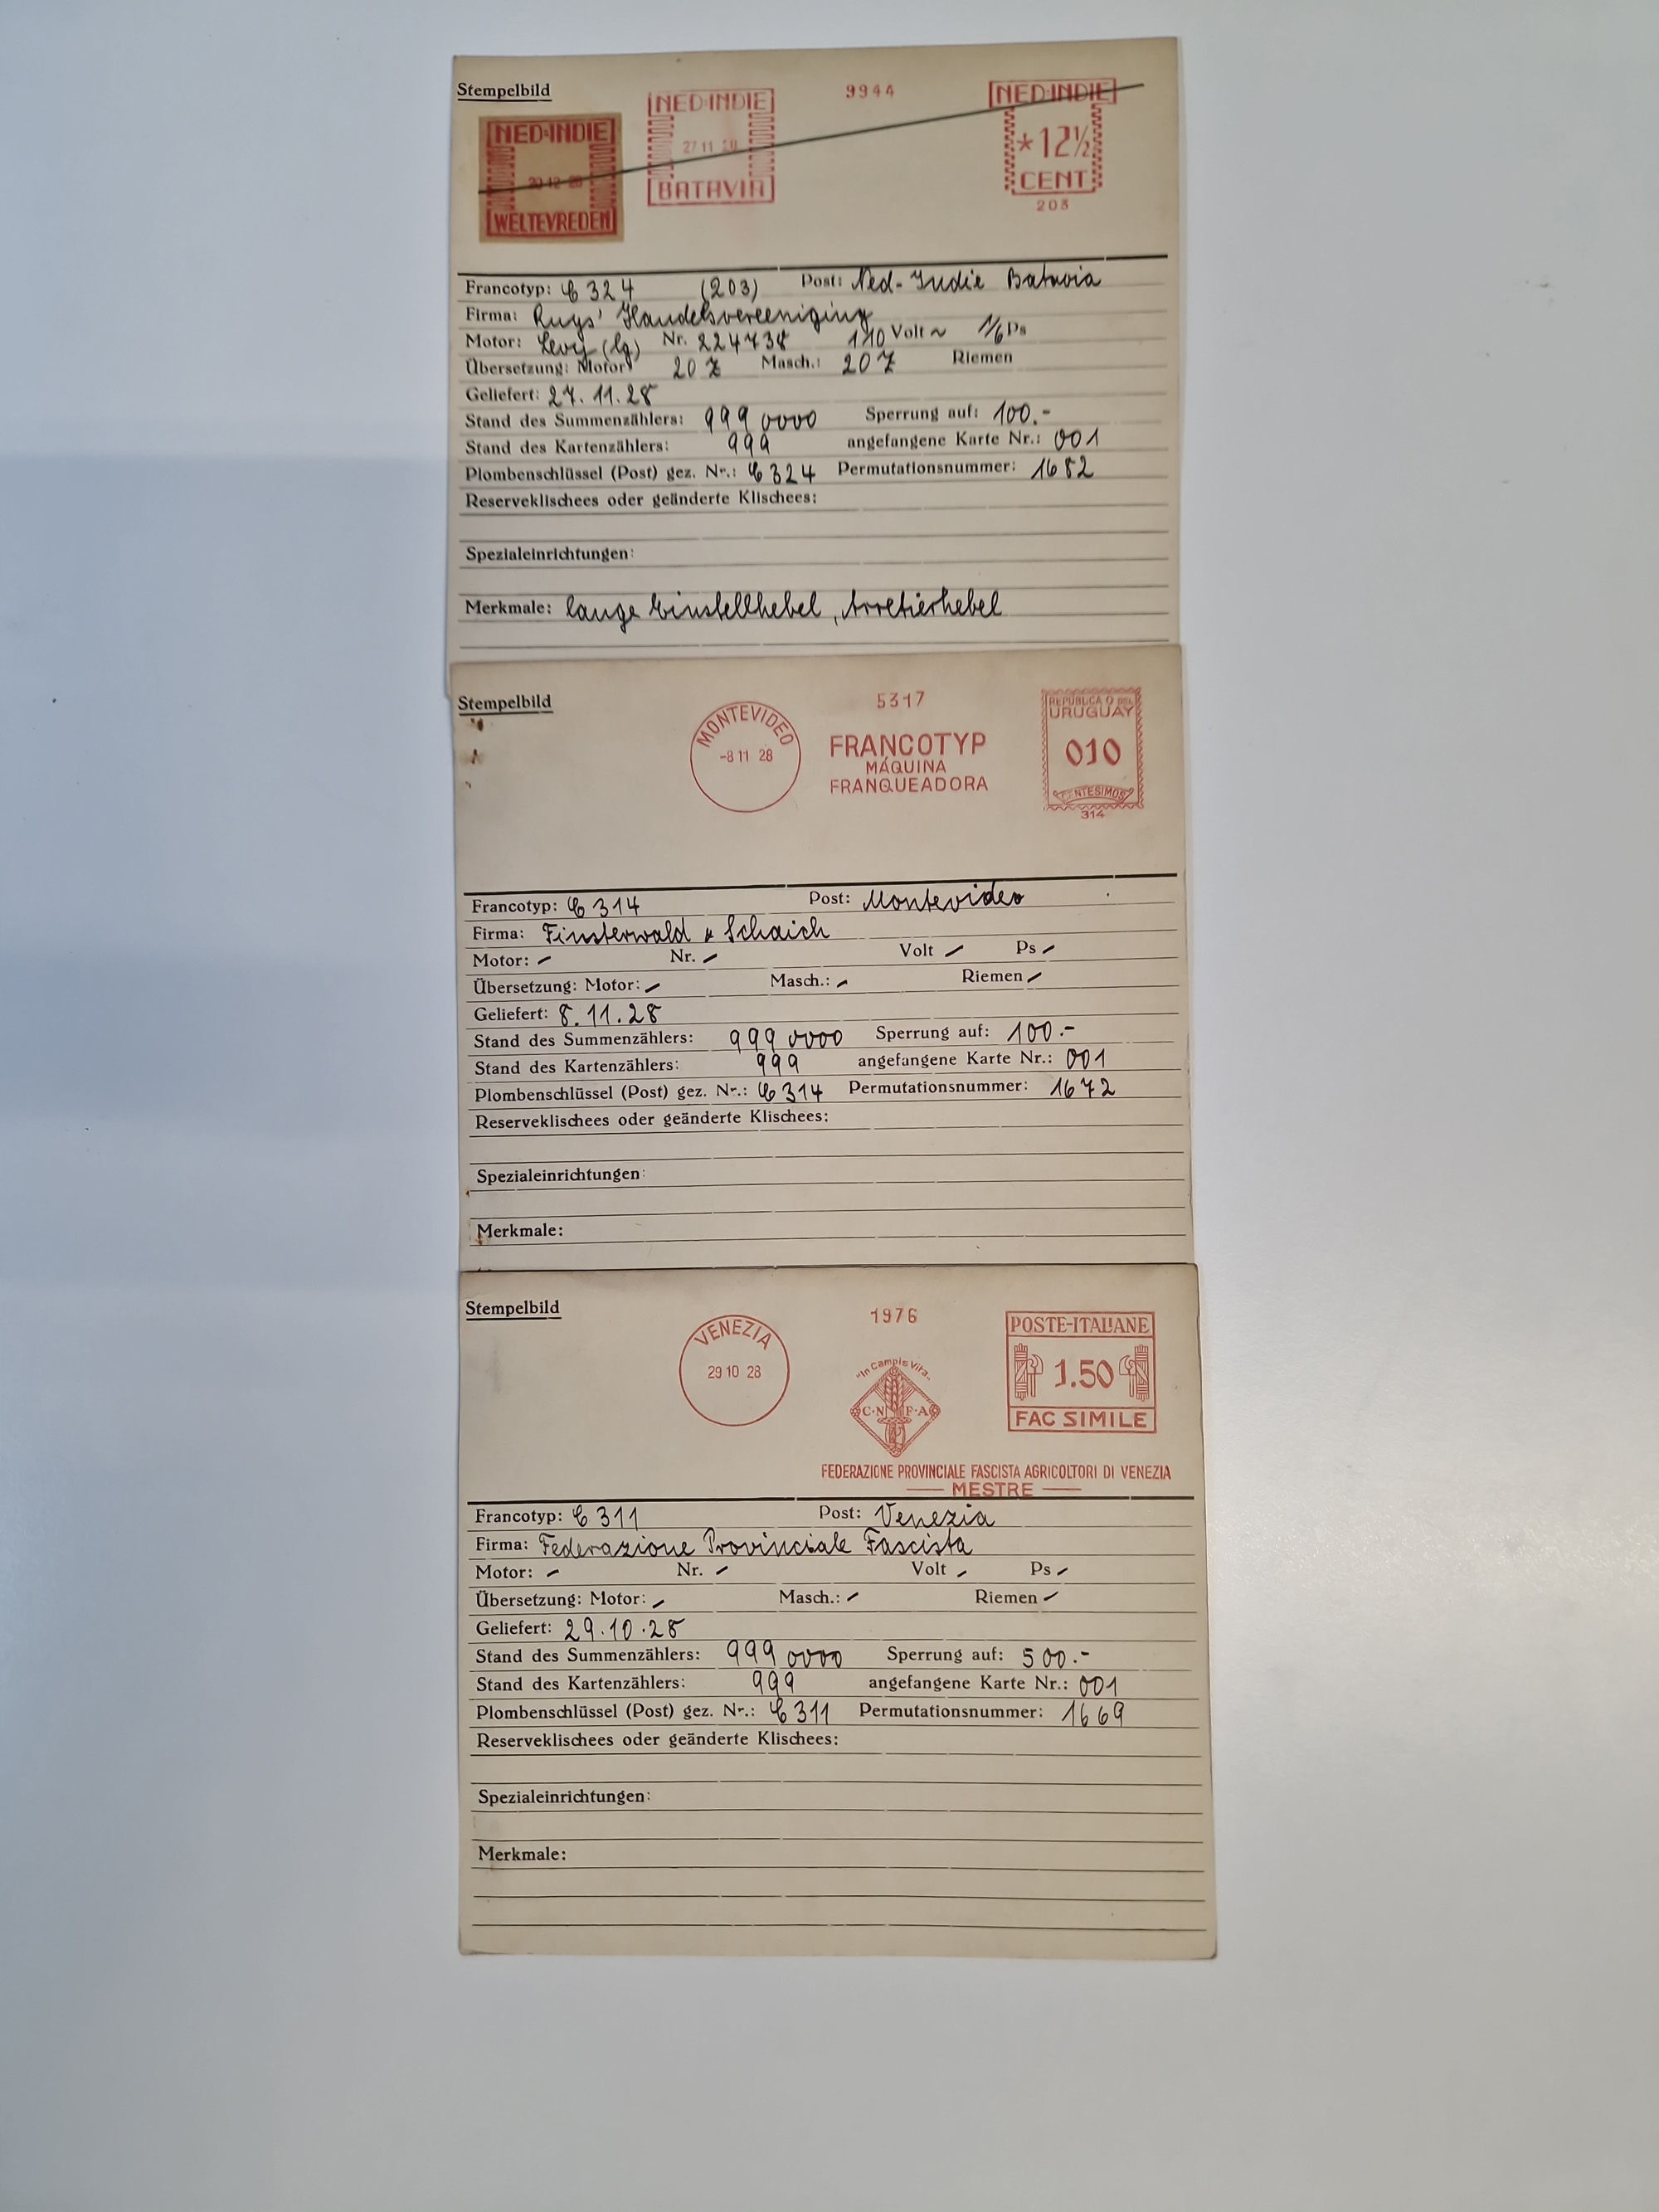 Stempelbild
NED-INDIE
20 12 28
WELTEVREDEN
NED-INDIE
27 11 28
BATAVIA
9944
NED-INDIE
*12½
CENT
203
Francotyp: C 324 (203) Post: Ned-Indie Batavia
Firma: Ruys' Handelsvereeniging
Motor: Levy (lg) Nr. 224738 110 Volt ~ 1/6 Ps
Übersetzung: Motor 20 Z Masch.: 20 Z Riemen
Geliefert: 27.11.28
Stand des Summenzählers: 999 0000 Sperrung auf: 100.-
Stand des Kartenzählers: 999 angefangene Karte Nr.: 001
Plombenschlüssel (Post) gez. Nr.: C 324 Permutationsnummer: 1682
Reserveklischees oder geänderte Klischees:
Spezialeinrichtungen:
Merkmale: lange Einstellhebel, Arretierhebel
Stempelbild
MONTEVIDEO
-8 11 28
5317
FRANCOTYP
MÁQUINA
FRANQUEADORA
REPUBLICA O. DEL
URUGUAY
010
CENTESIMOS
314
Francotyp: C 314 Post: Montevideo
Firma: Finsterwald & Schaich
Motor: - Nr. - Volt - Ps -
Übersetzung: Motor: - Masch.: - Riemen -
Geliefert: 8.11.28
Stand des Summenzählers: 999 0000 Sperrung auf: 100.-
Stand des Kartenzählers: 999 angefangene Karte Nr.: 001
Plombenschlüssel (Post) gez. Nr.: C 314 Permutationsnummer: 1672
Reserveklischees oder geänderte Klischees:
Spezialeinrichtungen:
Merkmale:
Stempelbild
VENEZIA
29 10 28
1976
"In Campis Vita"
C·N F·A
POSTE-ITALIANE
1.50
FAC SIMILE
FEDERAZIONE PROVINCIALE FASCISTA AGRICOLTORI DI VENEZIA
— MESTRE —
Francotyp: C 311 Post: Venezia
Firma: Federazione Provinciale Fascista
Motor: - Nr. - Volt - Ps -
Übersetzung: Motor: - Masch.: - Riemen -
Geliefert: 29.10.28
Stand des Summenzählers: 999 0000 Sperrung auf: 500.-
Stand des Kartenzählers: 999 angefangene Karte Nr.: 001
Plombenschlüssel (Post) gez. Nr.: C 311 Permutationsnummer: 1669
Reserveklischees oder geänderte Klischees:
Spezialeinrichtungen:
Merkmale: